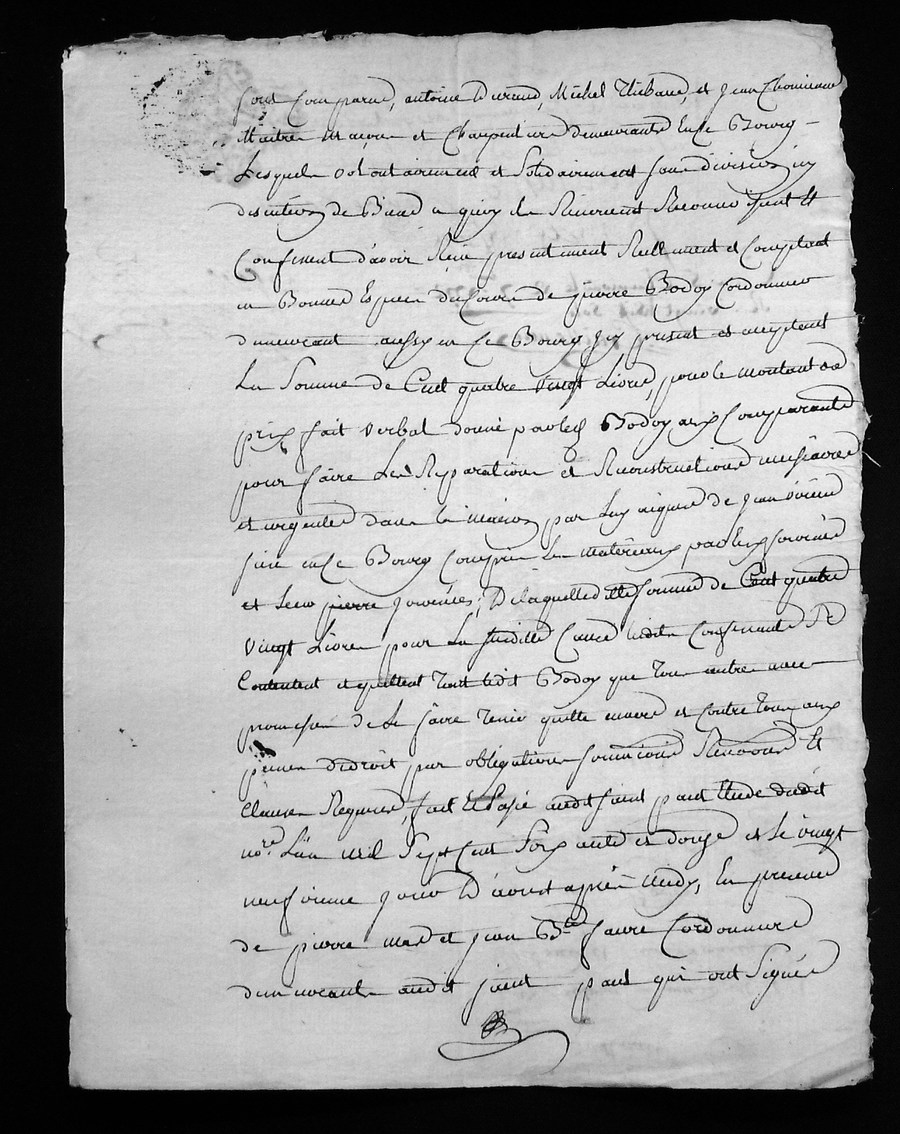 sont Comparus, antoine Durand, Michel Thibaud, et Jean
Maitres Maçons et Charpentiers demeurants En ce Bourg
Lesquels volontairement et Solidairement sans division ny
discution de Biens a quoy ils Renoncent Reconnoissent Et
Confessent d'avoir Reçu presentement Reellement et Comptant
en Bonnes Especes du Cours de pierre Bodoy Cordonnier
demeurant aussy en Ce Bourg Icy present et acceptant
La Somme de Cent quatre vingt Livres, pour le montant de
prix fait verbal donné par led Bodoy aux Comparants
pour faire Les Reparations et Reconstructions necessaires
et urgentes dans la maison par Luy aquise de Jean
size en Ce Bourg Compris Les materiaux par Eux fournis
et pierre fournies; De laquelle ditte somme de Cent quatre
vingt Livres pour La susditte Cause lesdits Confessants Se
Contentent et quittent tant ledit Bodoy que tous autres avec
promesse de Le faire tenir quitte envers et Contre tous aux
peines de droit par obligations soumissions Renonces Et
Clauses Requises, fait Et Passé audit saint paul Etude dudit
nore. L'an mil Sept Cent Soixante et douze et Le vingt
neufvieme Jour D'aoust après Midy, En presence
de pierre et jean Bte. faure Cordonniers
demeurants audit saint paul qui ont Signé